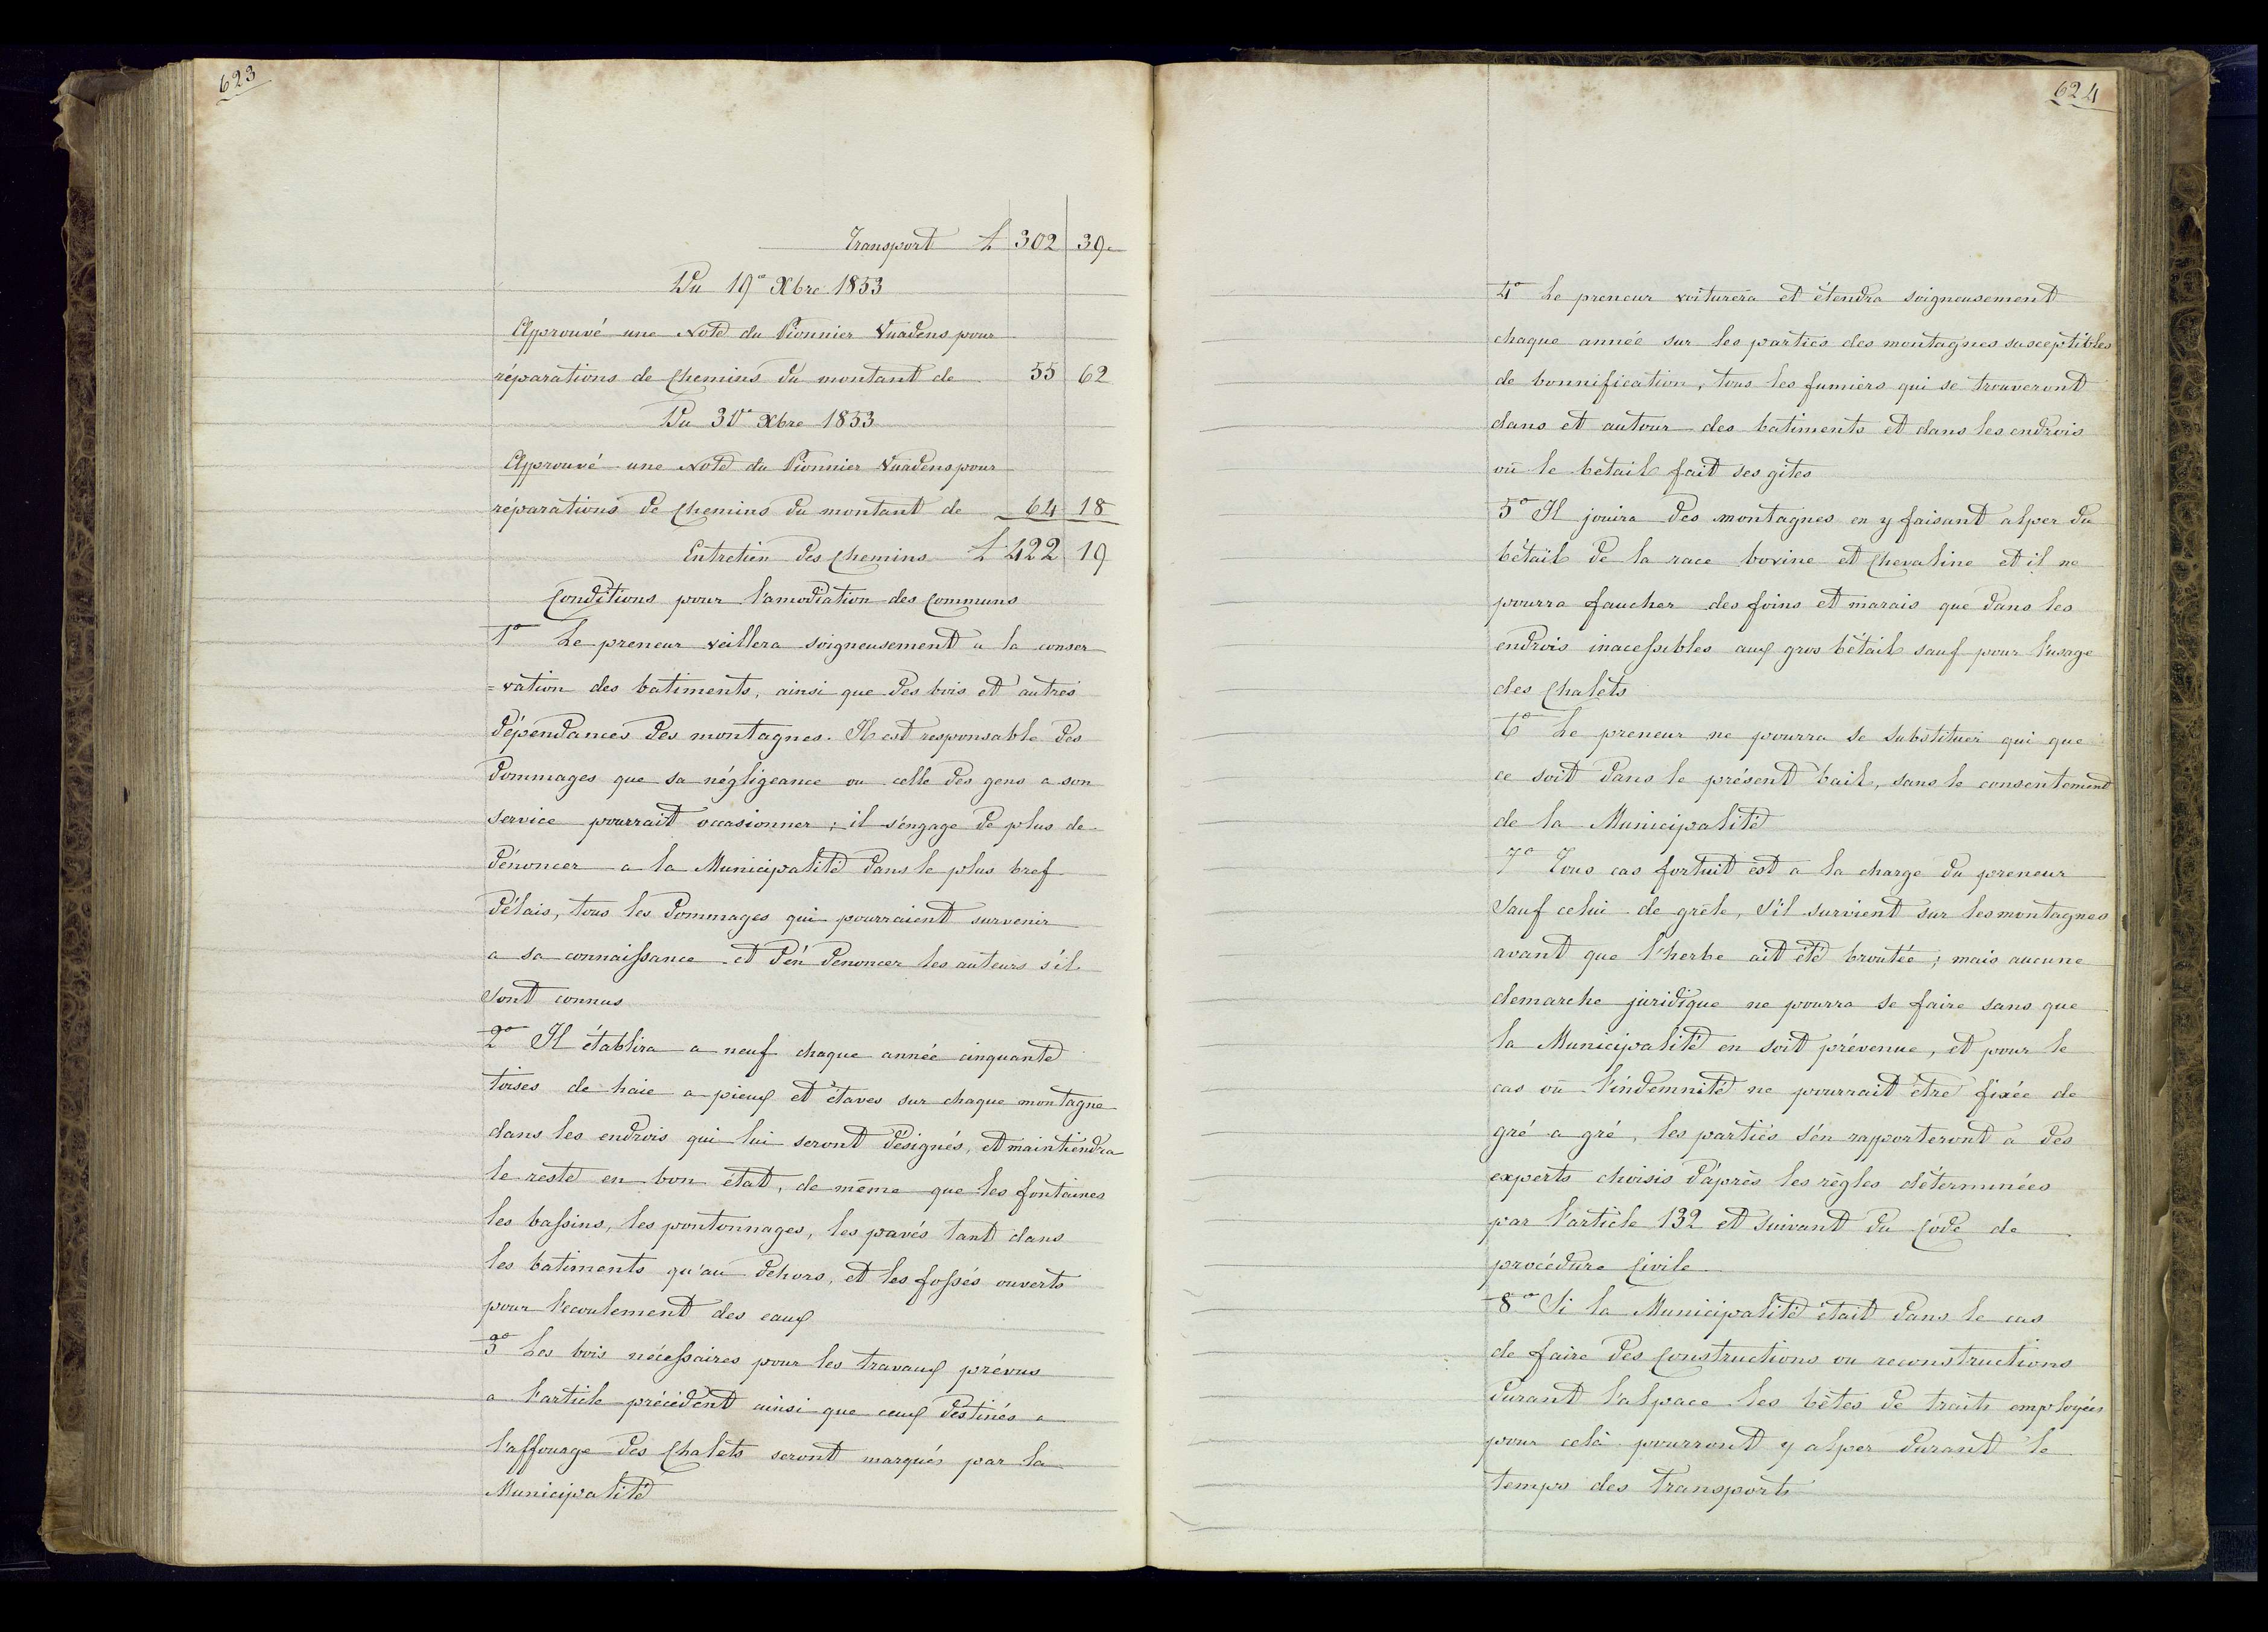 623
Transport L 302 39.
Du 19e Xbre 1853
Approuvé une Note du Pionnier Vuadens pour
réparations de Chemins du montant de 55 62
Du 30e Xbre 1853
Approuvé une Note du Pionnier Vuadens pour
réparations de Chemins du montant de 64 18
Entretien des Chemins L 422 19
Conditions pour l'amodiation des Communs
1o Le preneur veillera soigneusement a la conser
=vation des batiments, ainsi que des bois et autres
dépendances des montagnes. Il est responsable des
dommages que sa négligeance ou celle des gens a son
service pourrait occasionner ; il s'engage de plus de
dénoncer a la Municipalité dans le plus bref
délais, tous les dommages qui pourraient survenir
a sa connaissance et d'en denoncer les auteurs s'il
sont connus
2o Il établira a neuf chaque année cinquante
toises de haie a pieux et étaves sur chaque montagne
dans les endrois qui lui seront désignés, et maintiendra
le reste en bon état, de même que les fontaines
les bassins, les pontonnages, les pavés tant dans
les batiments qu'au dehors, et les fossés ouverts
pour l'ecoulement des eaux
3o Les bois nécessaires pour les travaux prévus
a l'article précédent ainsi que ceux destinés a
l'affouage des Chalets seront marqués par la
Municipalité
624
4o Le preneur voiturera et étendra soigneusement
chaque année sur les parties des montagnes susceptibles
de bonnification, tous les fumiers qui se trouveront
dans et autour des batiments et dans les endrois
où le betail fait ses gites
5o Il jouira des montagnes en y faisant alper du
bétail de la race bovine et Chevaline et il ne
pourra faucher des foins et marais que dans les
endrois inacessibles aux gros bétail sauf pour l'usage
des Chalets
6o Le preneur ne pourra se substituer qui que
ce soit dans le présent bail, sans le consentement
de la Municipalité
7o Tous cas fortuit est a la charge du preneur
Sauf celui de grêle, s'il survient sur les montagnes
avant que l'herbe ait été broutée ; mais aucune
demarche juridique ne pourra se faire sans que
la Municipalité en soit prévenue, et pour le
cas où l'indemnité ne pourrait être fixée de
gré a gré, les parties s'en rapporteront à des
experts choisis d'après les règles déterminées
par l'article 132 et suivant du Code de
procédure Civile.
8o Si la Municipalité était dans le cas
de faire des Constructions ou reconstructions
durant l'alpace les bêtes de traits employées
pour celà pourront y alper durant le
temps des transports